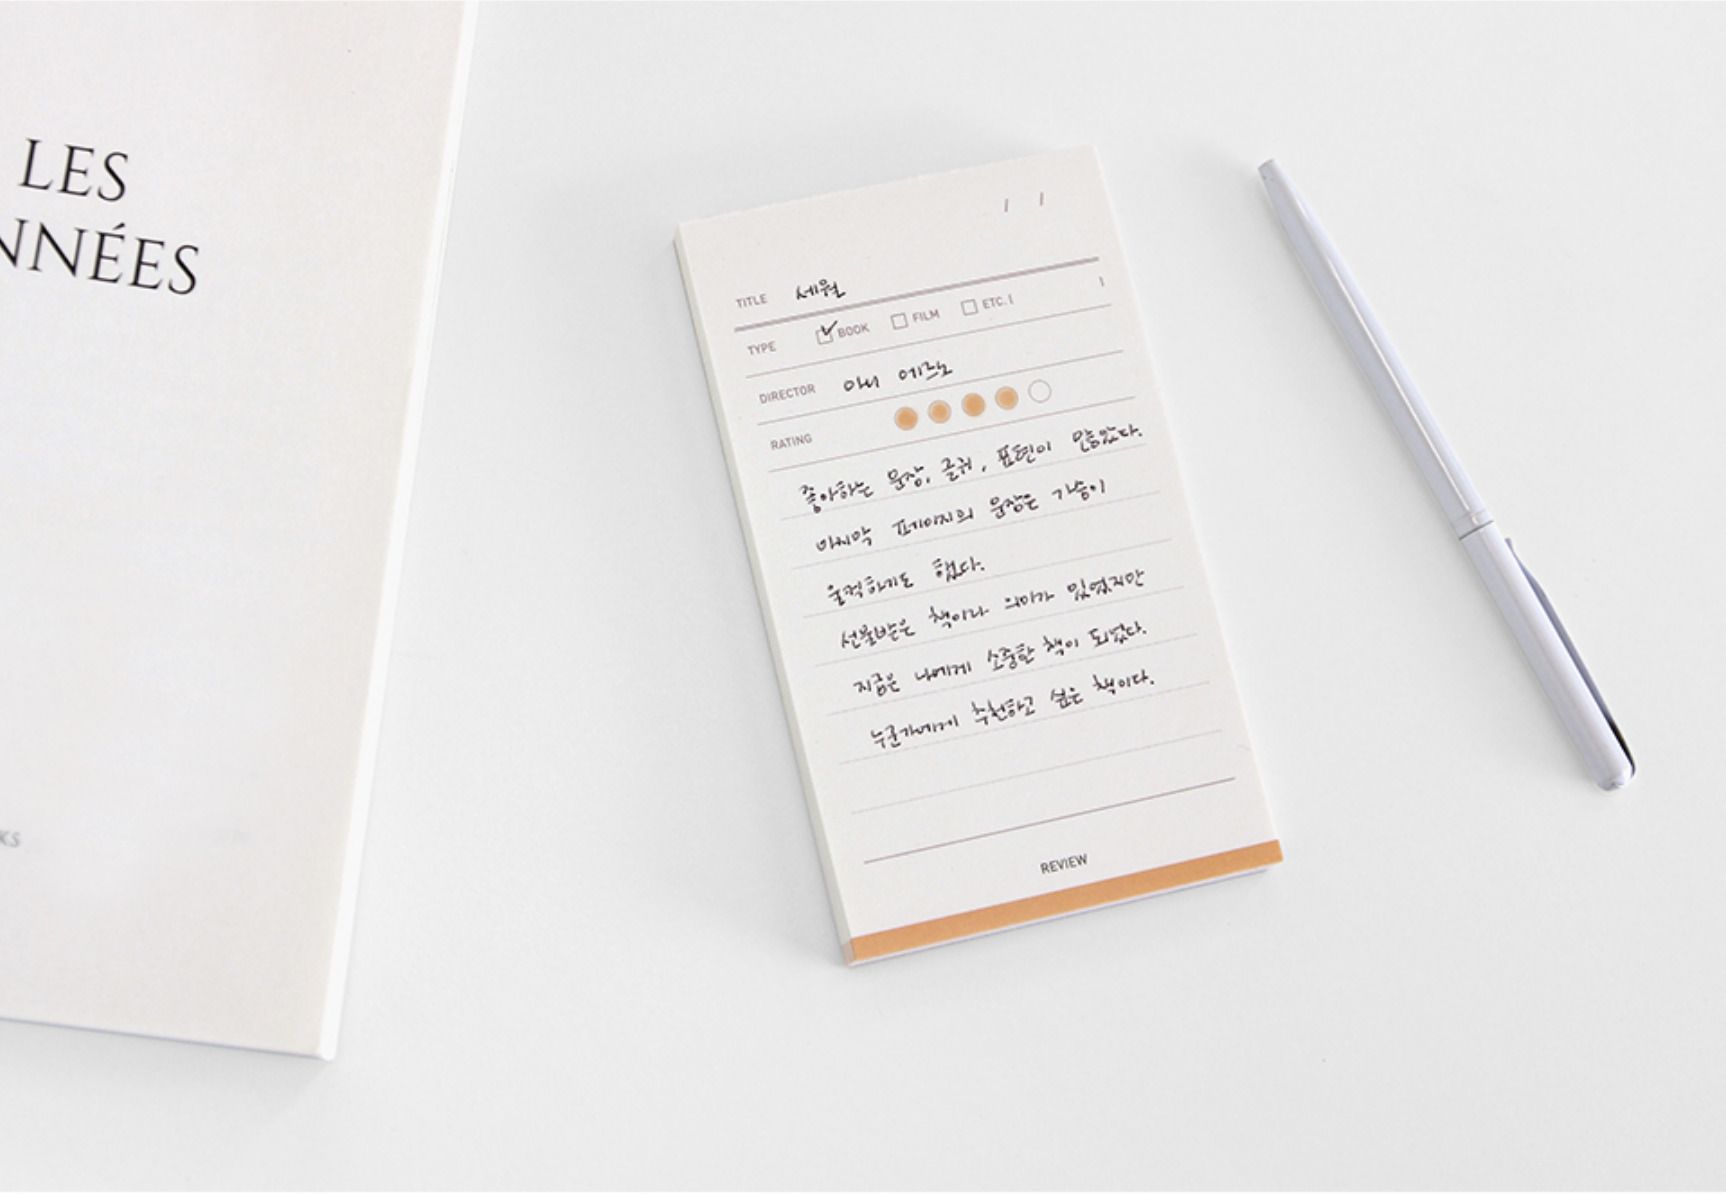 LES
NNÉES
KS
/ /
TITLE 세월
TYPE BOOK FILM ETC. [ ]
DIRECTOR 아니 에르노
RATING
좋아하는 문장, 글귀, 표현이 많았다.
마지막 페이지의 문장은 가슴이
울컥하기도 했다.
선물받은 책이라 의미가 있었지만
지금은 나에게 소중한 책이 되었다.
누군가에게 추천하고 싶은 책이다.
REVIEW